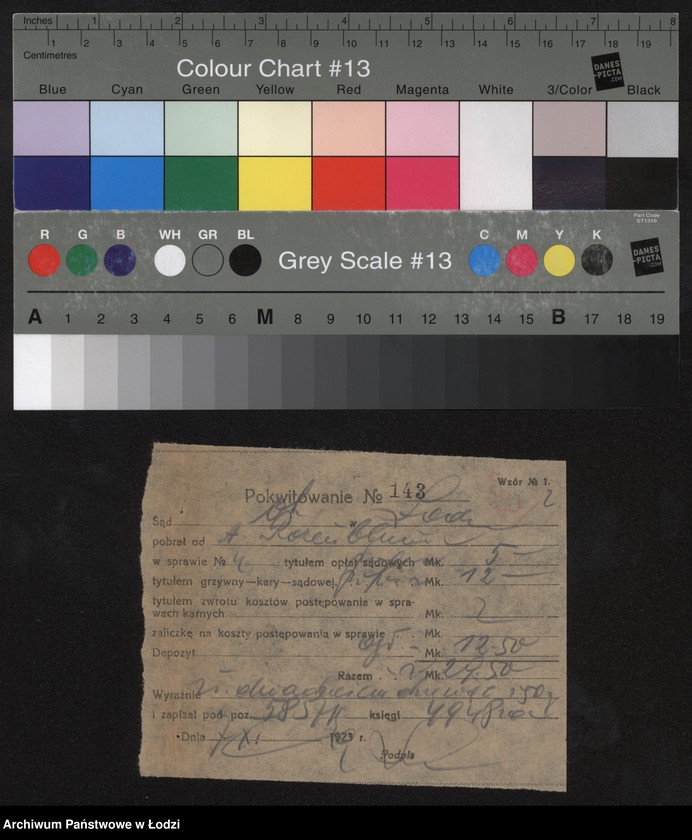 Inches 1 2 3 4 5 6 7 8
1 2 3 4 5 6 7 8 9 10 11 12 13 14 15 16 17 18 19
Centimetres
Colour Chart #13
DANES
-PICTA
.COM
Blue Cyan Green Yellow Red Magenta White 3/Color Black
Part Code
ST1316
R G B WH GR BL Grey Scale #13 C M Y K
DANES
-PICTA
.COM
A 1 2 3 4 5 6 M 8 9 10 11 12 13 14 15 B 17 18 19
Wzór № 1.
Pokwitowanie № 143
2
Sąd w Łodzi
pobrał od A Rosenbluma
w sprawie № tytułem opłat sądowych Mk. 5 —
tytułem grzywny—kary—sądowej Mk. 12 —
tytułem zwrotu kosztów postępowania w spra-
wach karnych Mk.
zaliczkę na koszty postępowania w sprawie Mk.
Depozyt Mk. 12.50
Razem Mk. 29.50
Wyraźnie dwadzieścia dziewięć i 50
i zapisał pod poz. księgi
Dnia XI 1923 r.
Podpis
Archiwum Państwowe w Łodzi